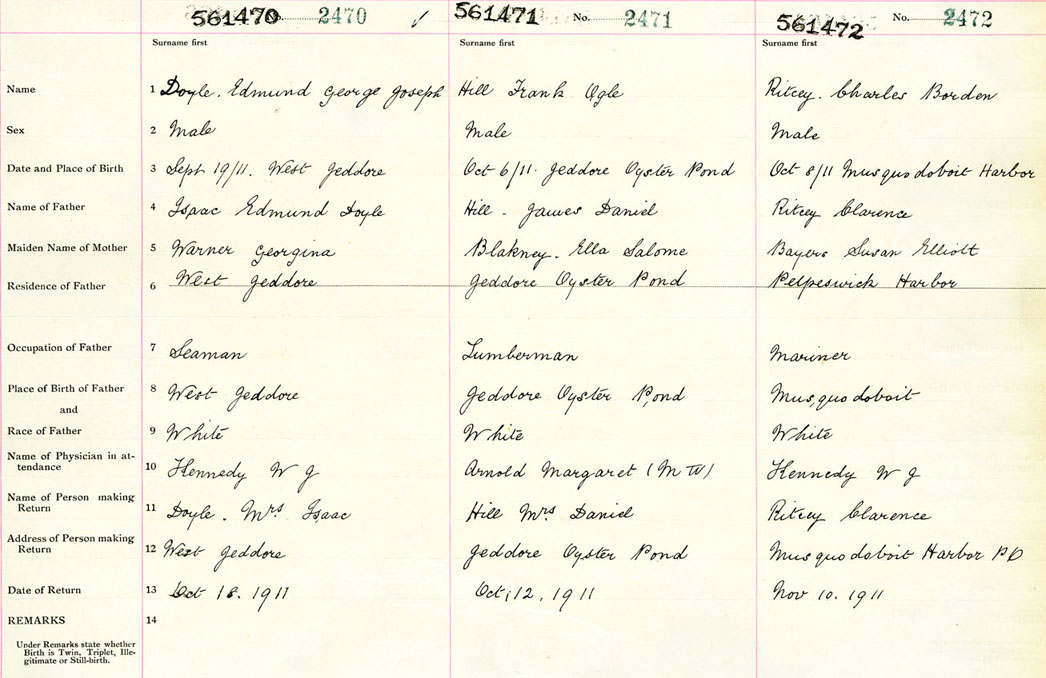 561470 No. 2470 ✓ 561471 No. 2471 561472 No. 2472
Surname first Surname first Surname first
Name 1 Doyle. Edmund George Joseph Hill Frank Ogle Ritcey. Charles Borden
Sex 2 Male Male Male
Date and Place of Birth 3 Sept 19/11. West Jeddore Oct 6/11. Jeddore Oyster Pond Oct 8/11 Musquodoboit Harbor
Name of Father 4 Isaac Edmund Doyle Hill. James Daniel Ritcey Clarence
Maiden Name of Mother 5 Warner Georgina Blakney. Ella Salome Bayers Susan Elliott
Residence of Father 6 West Jeddore Jeddore Oyster Pond Petpeswick Harbor
Occupation of Father 7 Seaman Lumberman Mariner
Place of Birth of Father 8 West Jeddore Jeddore Oyster Pond Musquodoboit
and
Race of Father 9 White White White
Name of Physician in at-
tendance 10 Kennedy W J Arnold Margaret (M W) Kennedy W J
Name of Person making
Return 11 Doyle. Mrs Isaac Hill Mrs Daniel Ritcey Clarence
Address of Person making
Return 12 West Jeddore Jeddore Oyster Pond Musquodoboit Harbor PO
Date of Return 13 Oct 18. 1911 Oct, 12, 1911 Nov 10. 1911
REMARKS 14
Under Remarks state whether
Birth is Twin, Triplet, Ille-
gitimate or Still-birth.